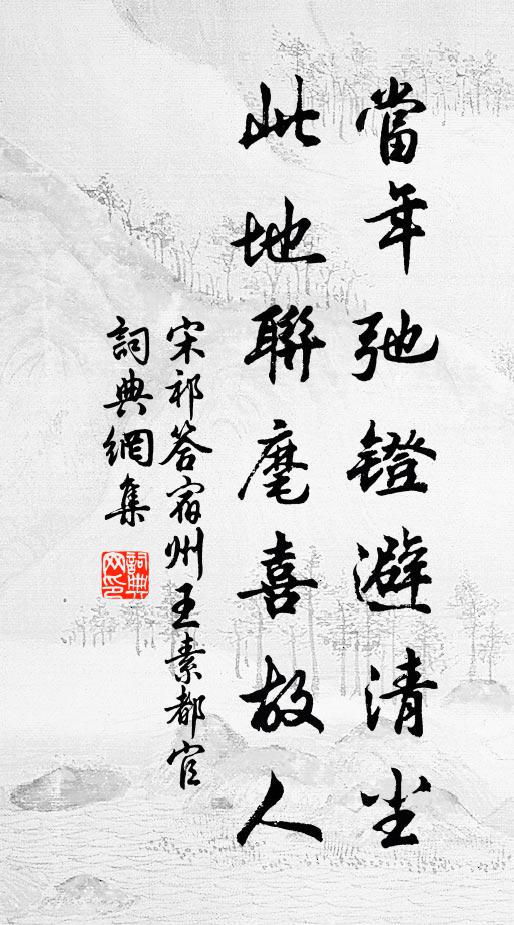 當年弛鐙避清尘
此地聯麾喜故人
宋祁答宿州王素都官
詞典網集
詞典網印